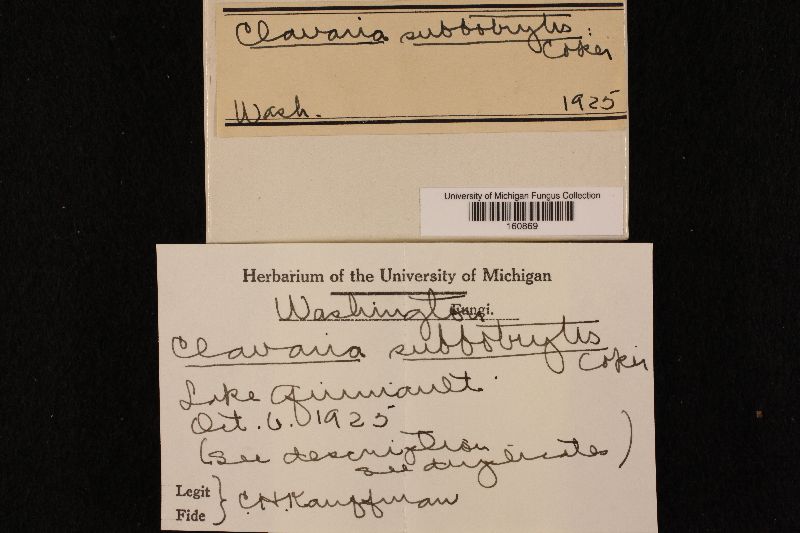 Clavaria subbotrytis
Coker
Wash. 1925
University of Michigan Fungus Collection
160869
Herbarium of the University of Michigan
Washington Fungi.
Clavaria subbotrytis
Coker
Lake Quinault
Oct. 6. 1925
(See description
see duplicates)
Legit
Fide } C.H. Kauffman